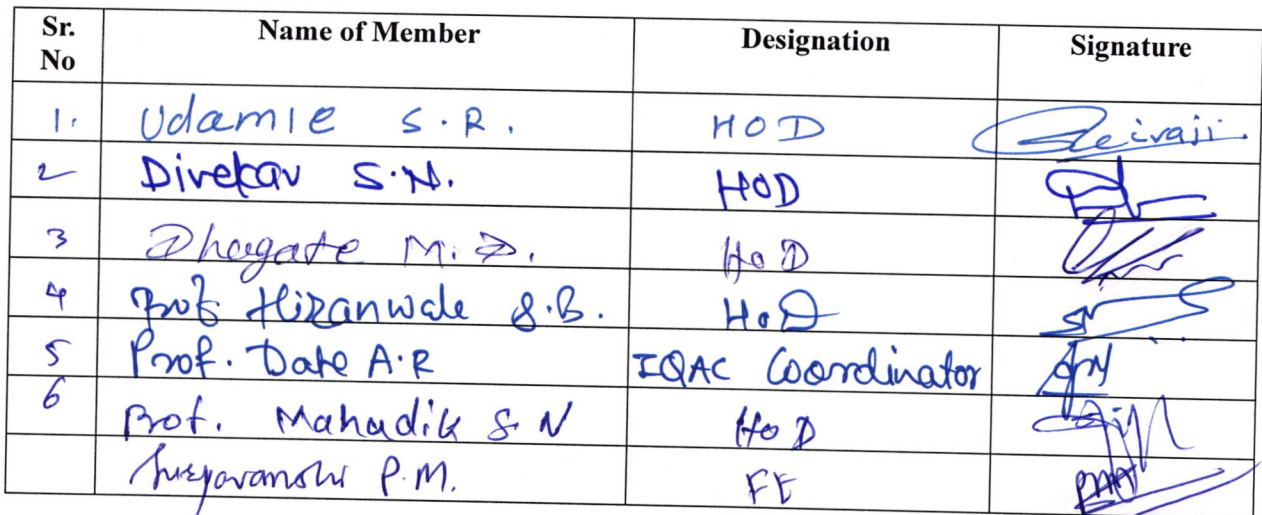 Sr. No Name of Member Designation Signature
1. Udamle S.R. HOD
2 Divekar S.N. HOD
3 Dhagate M.D. HoD
4 Prof Hiranwale S.B. HoD
5 Prof. Date A.R IQAC Coordinator
6 Prof. Mahadik S.N HoD
Suryavanshi P.M. FE